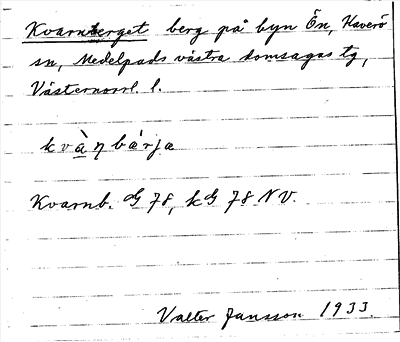 Kvarnberget berg på byn Ön, Haverö
sn, Medelpads västra domsagas tg,
Västernorrl. l.
kvàŋbárja
Kvarnb. G 78, kG 78 NV.
Valter Jansson 1933.